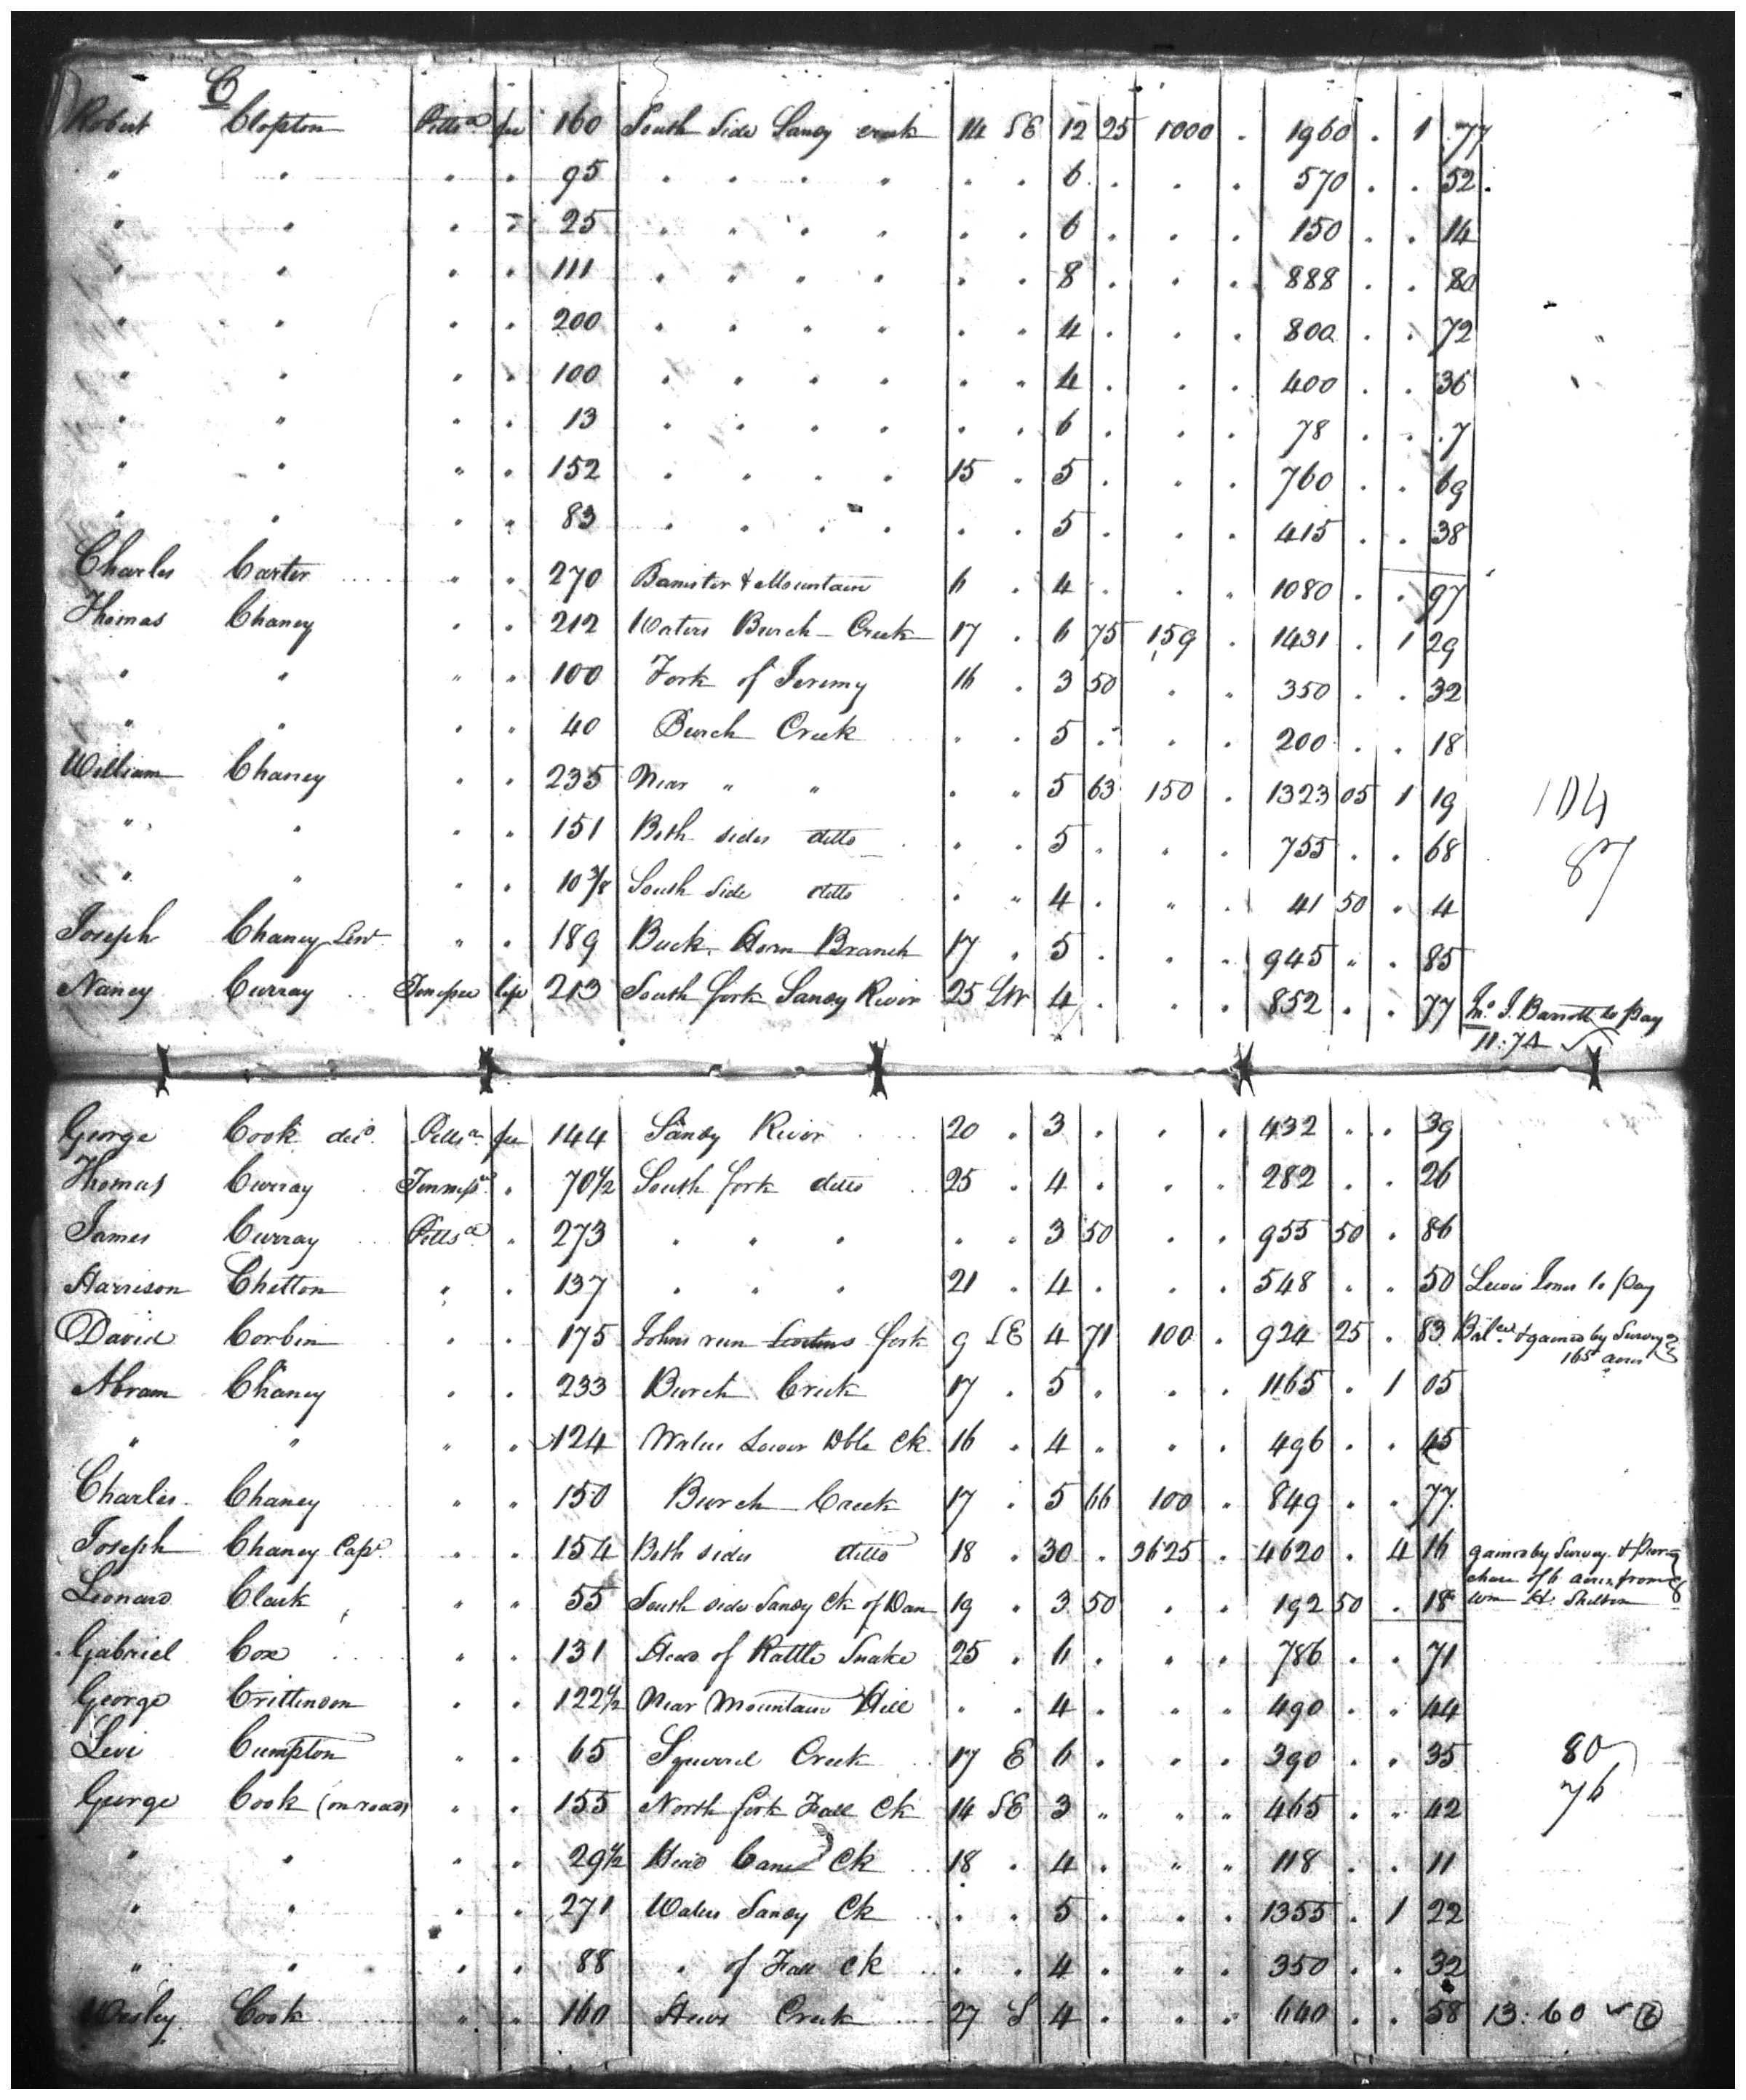 C
Robert Clopton Pittsa fee 160 South Side Sandy creek 14 SE 12 25 1000 . 1960 . 1 77
" " " " 95 " " " " " " 6 . . . 570 . . 52
" " " " 25 " " " " " " 6 . . . 150 . . 14
" " " " 111 " " " " " " 8 . . . 888 . . 80
" " " " 200 " " " " " " 4 . . . 800 . . 72
" " " " 100 " " " " " " 4 . . . 400 . . 36
" " " " 13 " " " " " " 6 . . . 78 . . 7
" " " " 152 " " " " 15 " 5 . . . 760 . . 69
" " " " 83 " " " " " " 5 . . . 415 . . 38
Charles Carter " " 270 Banister & Mountain 6 " 4 . . . 1080 . . 97
Thomas Chaney " " 212 Waters Burch Creek 17 " 6 75 159 . 1431 . 1 29
" " " " 100 Fork of Jeremy 16 " 3 50 . . 350 . . 32
" " " " 40 Burch Creek " " 5 . . . 200 . . 18
William Chaney " " 235 Near " " " " 5 63 150 . 1323 05 1 19 104
" " " " 151 Both sides ditto " " 5 . . . 755 . . 68 87
" " " " 10 3/8 South Side ditto " " 4 . . . 41 50 . 4
Joseph Chaney Senr " " 189 Buck Horn Branch 17 " 5 . . . 945 . . 85
Nancy Curray Tenessee life 213 South fork Sandy River 25 SW 4 . . . 852 . . 77 Jno J. Barrott to pay
11:74
George Cook decd Pittsa fee 144 Sandy River 20 . 3 . . . 432 . . 39
Thomas Curray Tennessee " 70 1/2 South fork ditto 25 . 4 . . . 282 . . 26
James Curray Pittsa " 273 " " " " " 3 50 . . 955 50 . 86
Harrison Chelton " " 137 " " " 21 . 4 . . . 548 . . 50 Lewis Jones to pay
David Corbin " " 175 Johns run fork 9 SE 4 71 100 . 924 25 . 83 & gained by Survey
165 acres
Abram Chaney " " 233 Burch Creek 17 . 5 . . . 1165 . 1 05
" " " " 124 Waters Lower Dble Ck 16 . 4 . . . 496 . . 45
Charles Chaney " " 150 Burch Creek 17 . 5 66 100 . 849 . . 77
Joseph Chaney Capt " " 154 Both sides ditto 18 . 30 . 3625 . 4620 . 4 16 gained by Survey & Pur
chase of 6 acres from
Leonard Clark " " 55 South side Sandy Ck of Dan 19 . 3 50 . . 192 50 . 18 Wm H. Shelton
Gabriel Cox " " 131 Head of Rattle Snake 25 . 6 . . . 786 . . 71
George Crittendon " " 122 1/2 Near Mountain Hill " " 4 . . . 490 . . 44
Levi Cumpton " " 65 Squirrel Creek 17 E 6 . . . 390 . . 35 80
George Cook (on road) " " 155 North fork Fall Ck 14 SE 3 " " " 465 . . 42 76
" " " " 29 1/2 Head Cane Ck 18 . 4 . " " 118 . . 11
" " " " 271 Waters Sandy Ck " " 5 . . . 1355 . 1 22
" " " " 88 " of Fall Ck " " 4 . . . 350 . . 32
Wesley Cook " " 160 Hews Creek 27 S 4 . . . 640 . . 58 13:60